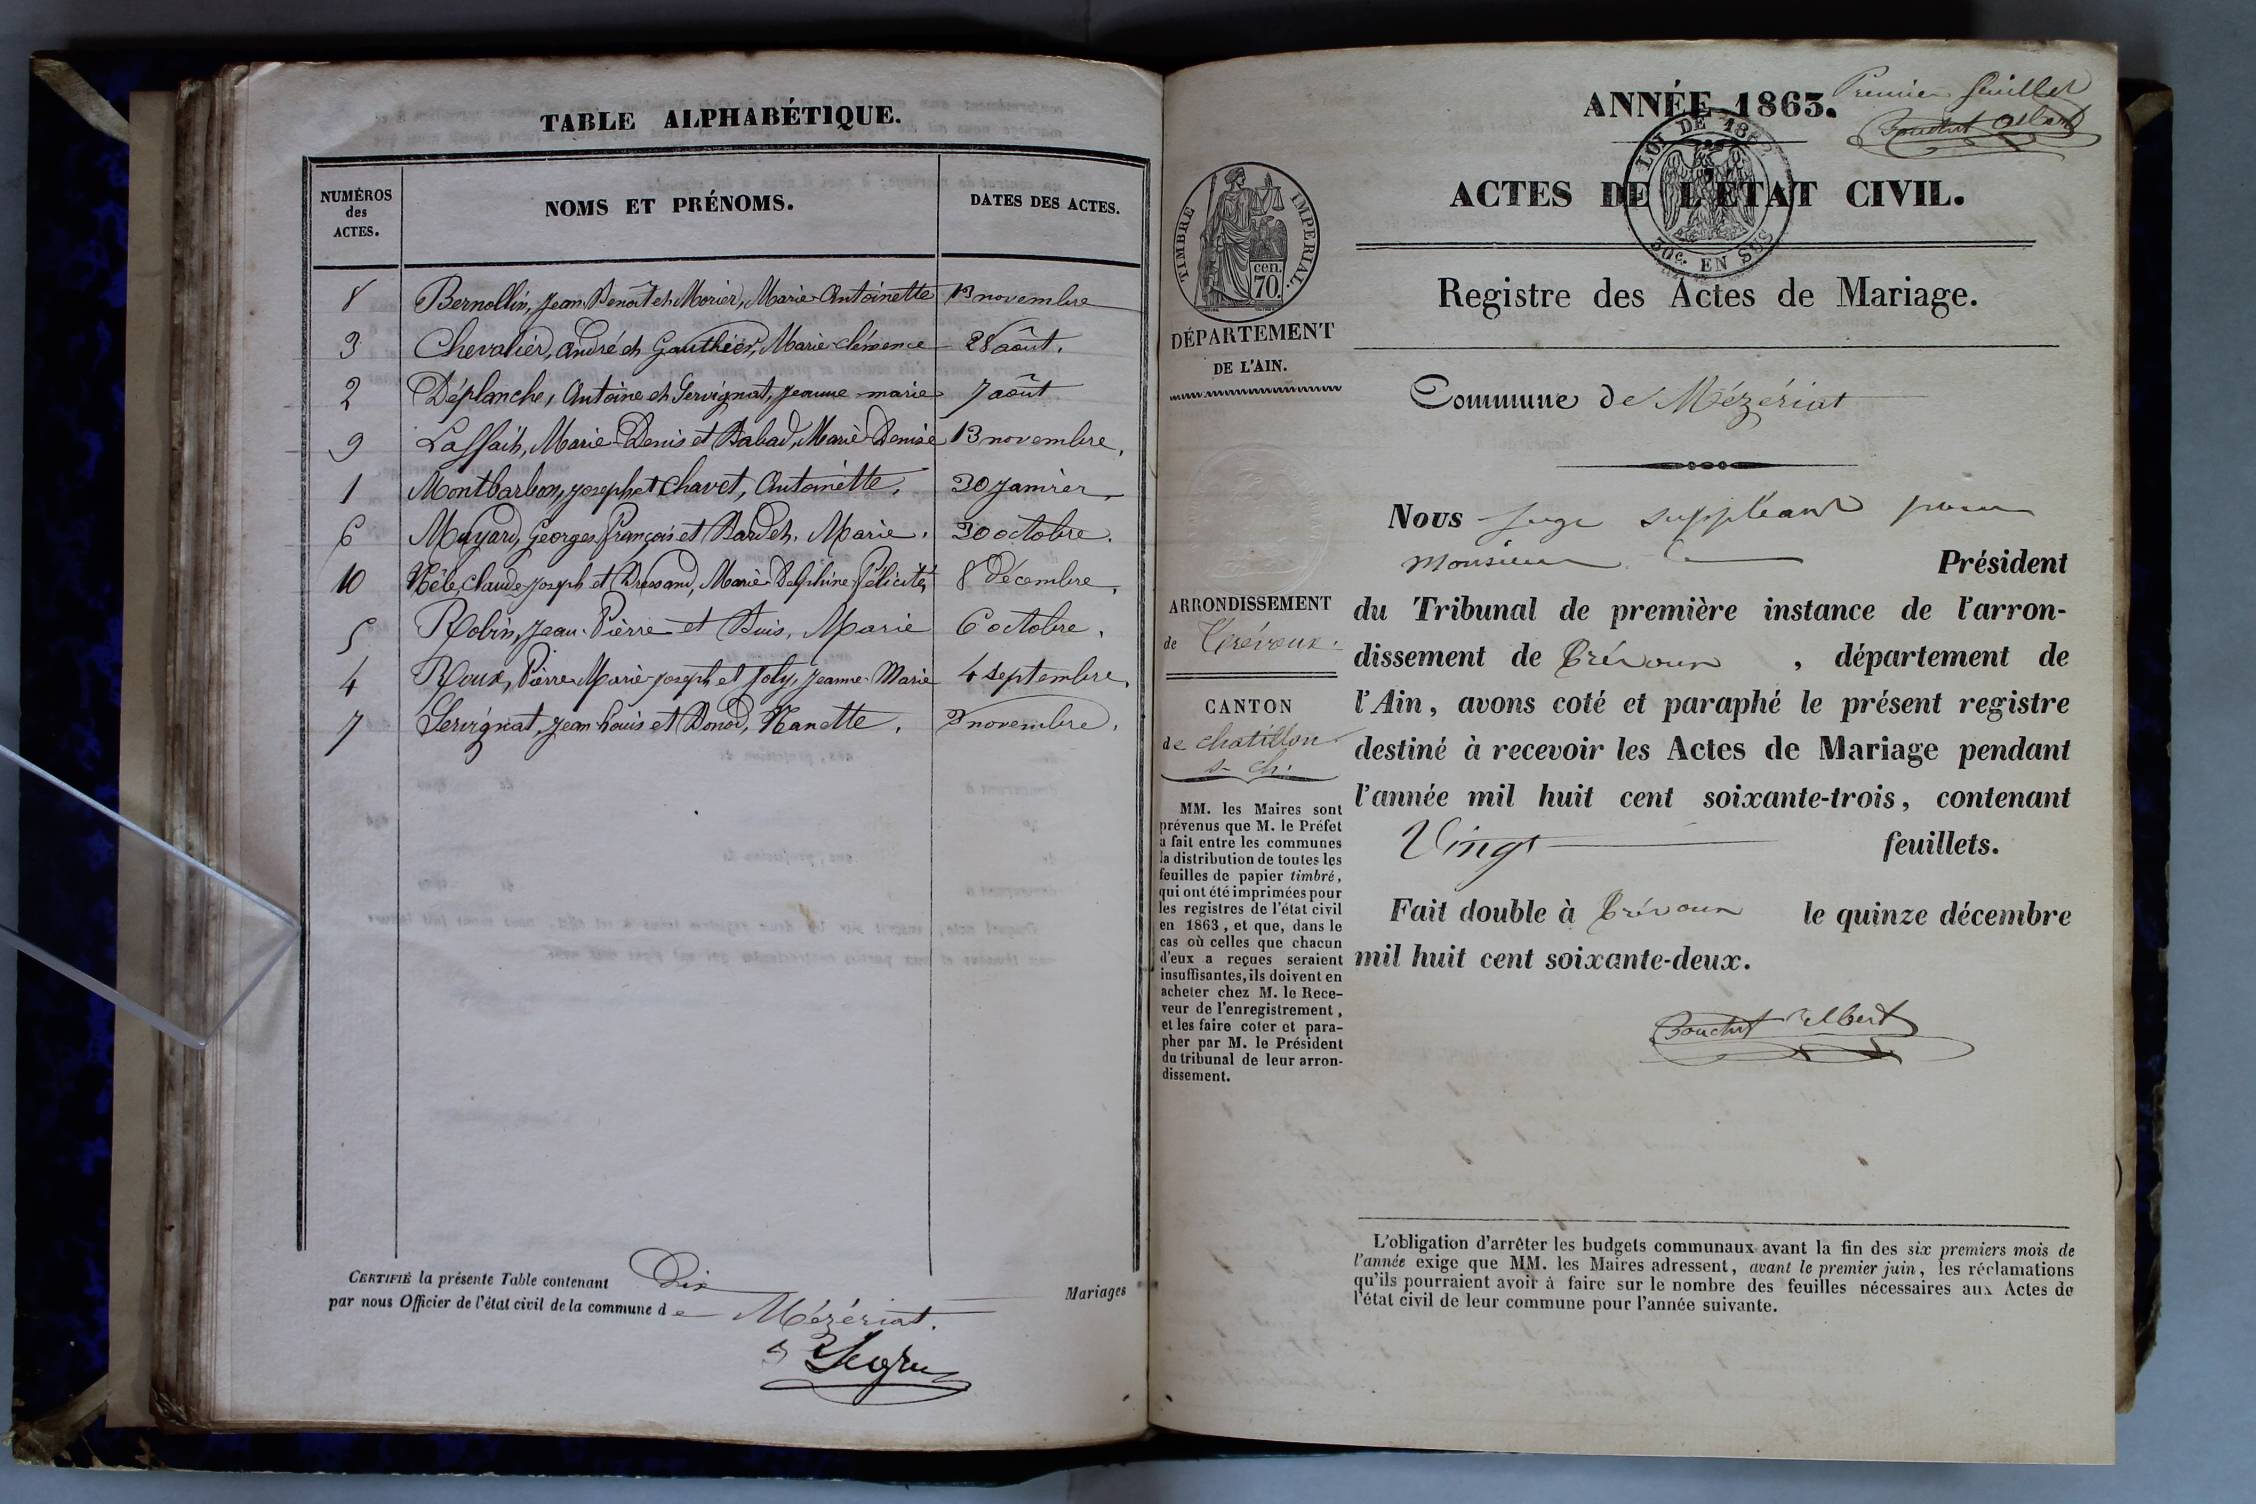 TABLE ALPHABÉTIQUE.
NUMÉROS
des
ACTES.
NOMS ET PRÉNOMS.
DATES DES ACTES.
8 Bernollin, Jean Benoît et Morier, Marie Antoinette 13 novembre
3 Chevalier, André et Gauthier, Marie Clémence 28 août.
2 Déplanche, Antoine et Servignat, Jeanne marie 7 août
9 Laffaih, Marie-Denis et Babad, Marie Denise 13 novembre.
1 Montbarbon, Joseph et Chavet, Antoinette. 30 Janvier
6 Mayard, Georges François et Bardet, Marie. 30 octobre.
10 Claude Joseph et Marie Delphine Félicité 8 décembre.
5 Robin, Jean-Pierre et Buis, Marie 6 octobre.
4 Roux, Pierre Marie Joseph et Joly, Jeanne Marie 4 septembre.
7 Servignat, Jean Louis et Donod, Nanette. 3 novembre.
CERTIFIÉ la présente Table contenant Dix Mariages
par nous Officier de l'état civil de la commune de Mézériat.
ANNÉE 1863.
Premier feuillet
Bouchet Albert
LOI DE 1862
50c. EN SUS
ACTES DE L'ÉTAT CIVIL.
Registre des Actes de Mariage.
TIMBRE IMPÉRIAL.
70 cen.
DÉPARTEMENT
DE L'AIN.
ARRONDISSEMENT
de Trévoux.
CANTON
de chatillon
s- ch.
MM. les Maires sont
prévenus que M. le Préfet
a fait entre les communes
la distribution de toutes les
feuilles de papier timbré,
qui ont été imprimées pour
les registres de l'état civil
en 1863, et que, dans le
cas où celles que chacun
d'eux a reçues seraient
insuffisantes, ils doivent en
acheter chez M. le Rece-
veur de l'enregistrement,
et les faire coter et para-
pher par M. le Président
du tribunal de leur arron-
dissement.
Commune de Mézériat
Nous Juge suppléant pour
Monsieur le Président
du Tribunal de première instance de l'arron-
dissement de Trévoux, département de
l'Ain, avons coté et paraphé le présent registre
destiné à recevoir les Actes de Mariage pendant
l'année mil huit cent soixante-trois, contenant
Vingt feuillets.
Fait double à Trévoux le quinze décembre
mil huit cent soixante-deux.
Bouchet Albert
L'obligation d'arrêter les budgets communaux avant la fin des six premiers mois de
l'année exige que MM. les Maires adressent, avant le premier juin, les réclamations
qu'ils pourraient avoir à faire sur le nombre des feuilles nécessaires aux Actes de
l'état civil de leur commune pour l'année suivante.